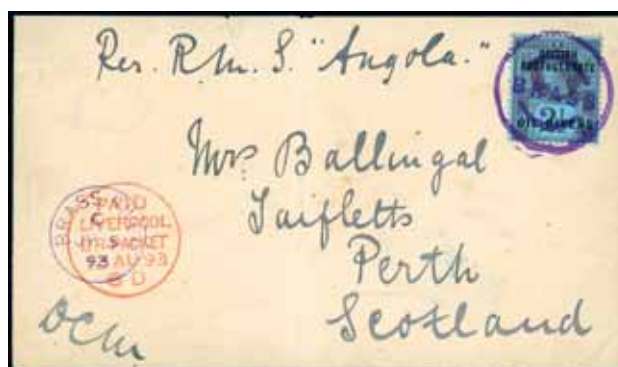 Per. R.M.S. "Angola."
BRITISH
PROTECTORATE
BRASS
2½
OIL RIVERS
Mrs Ballingal
Taifletts
Perth
Scotland
BRASS
PAID
LIVERPOOL
BR. PACKET
93 AU 93